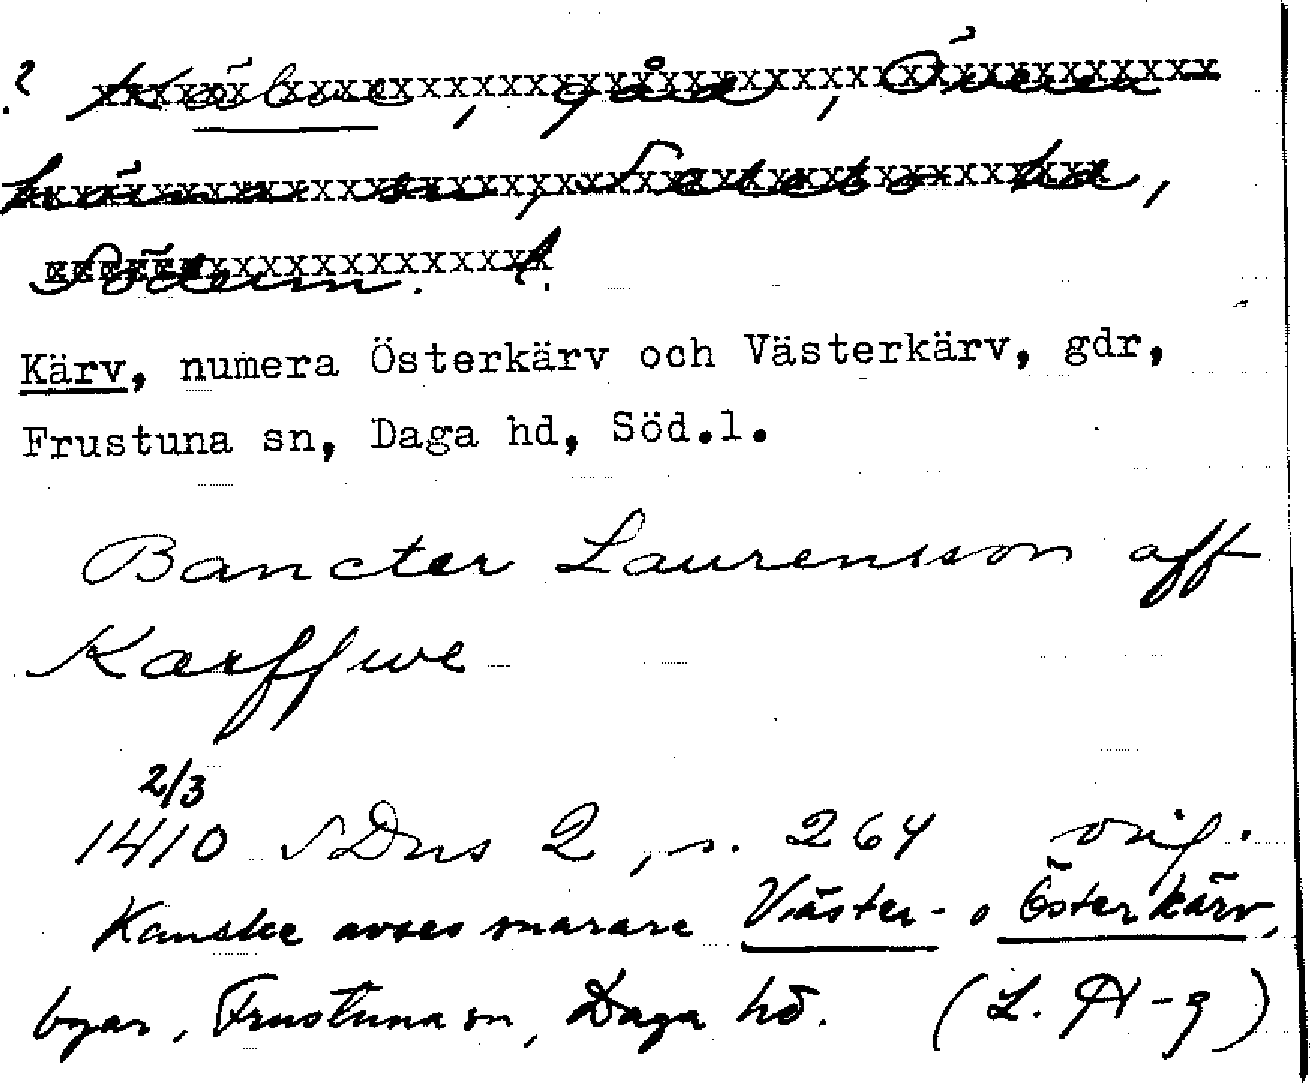 ?
, gård, 
sn, Selebo hd,
Söderm. l.
Kärv, numera Österkärv och Västerkärv, gdr,
Frustuna sn, Daga hd, Söd.l.
Bancter Laurensson aff
Karffwe
2/3
1410 SDns 2, s. 264 orig.
Kanske avses snarare Väster- o Österkärv,
byar, Frustuna sn, Daga hd. (L. H-g)